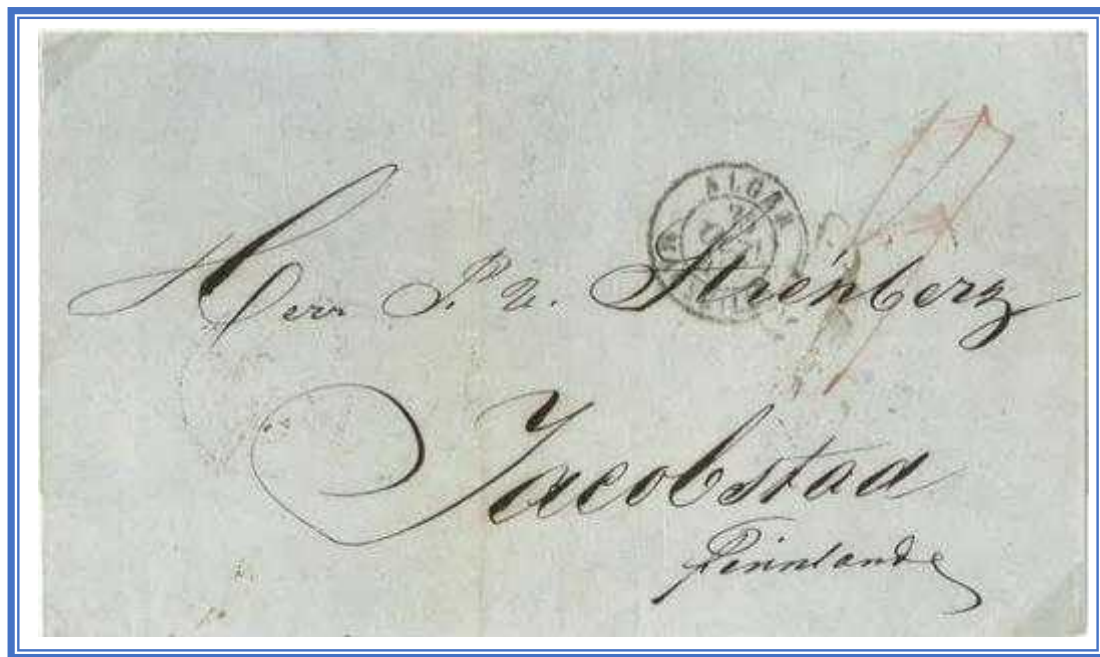 ALGER
Herr P. U. Strénberg
Jacobstad
Finnland